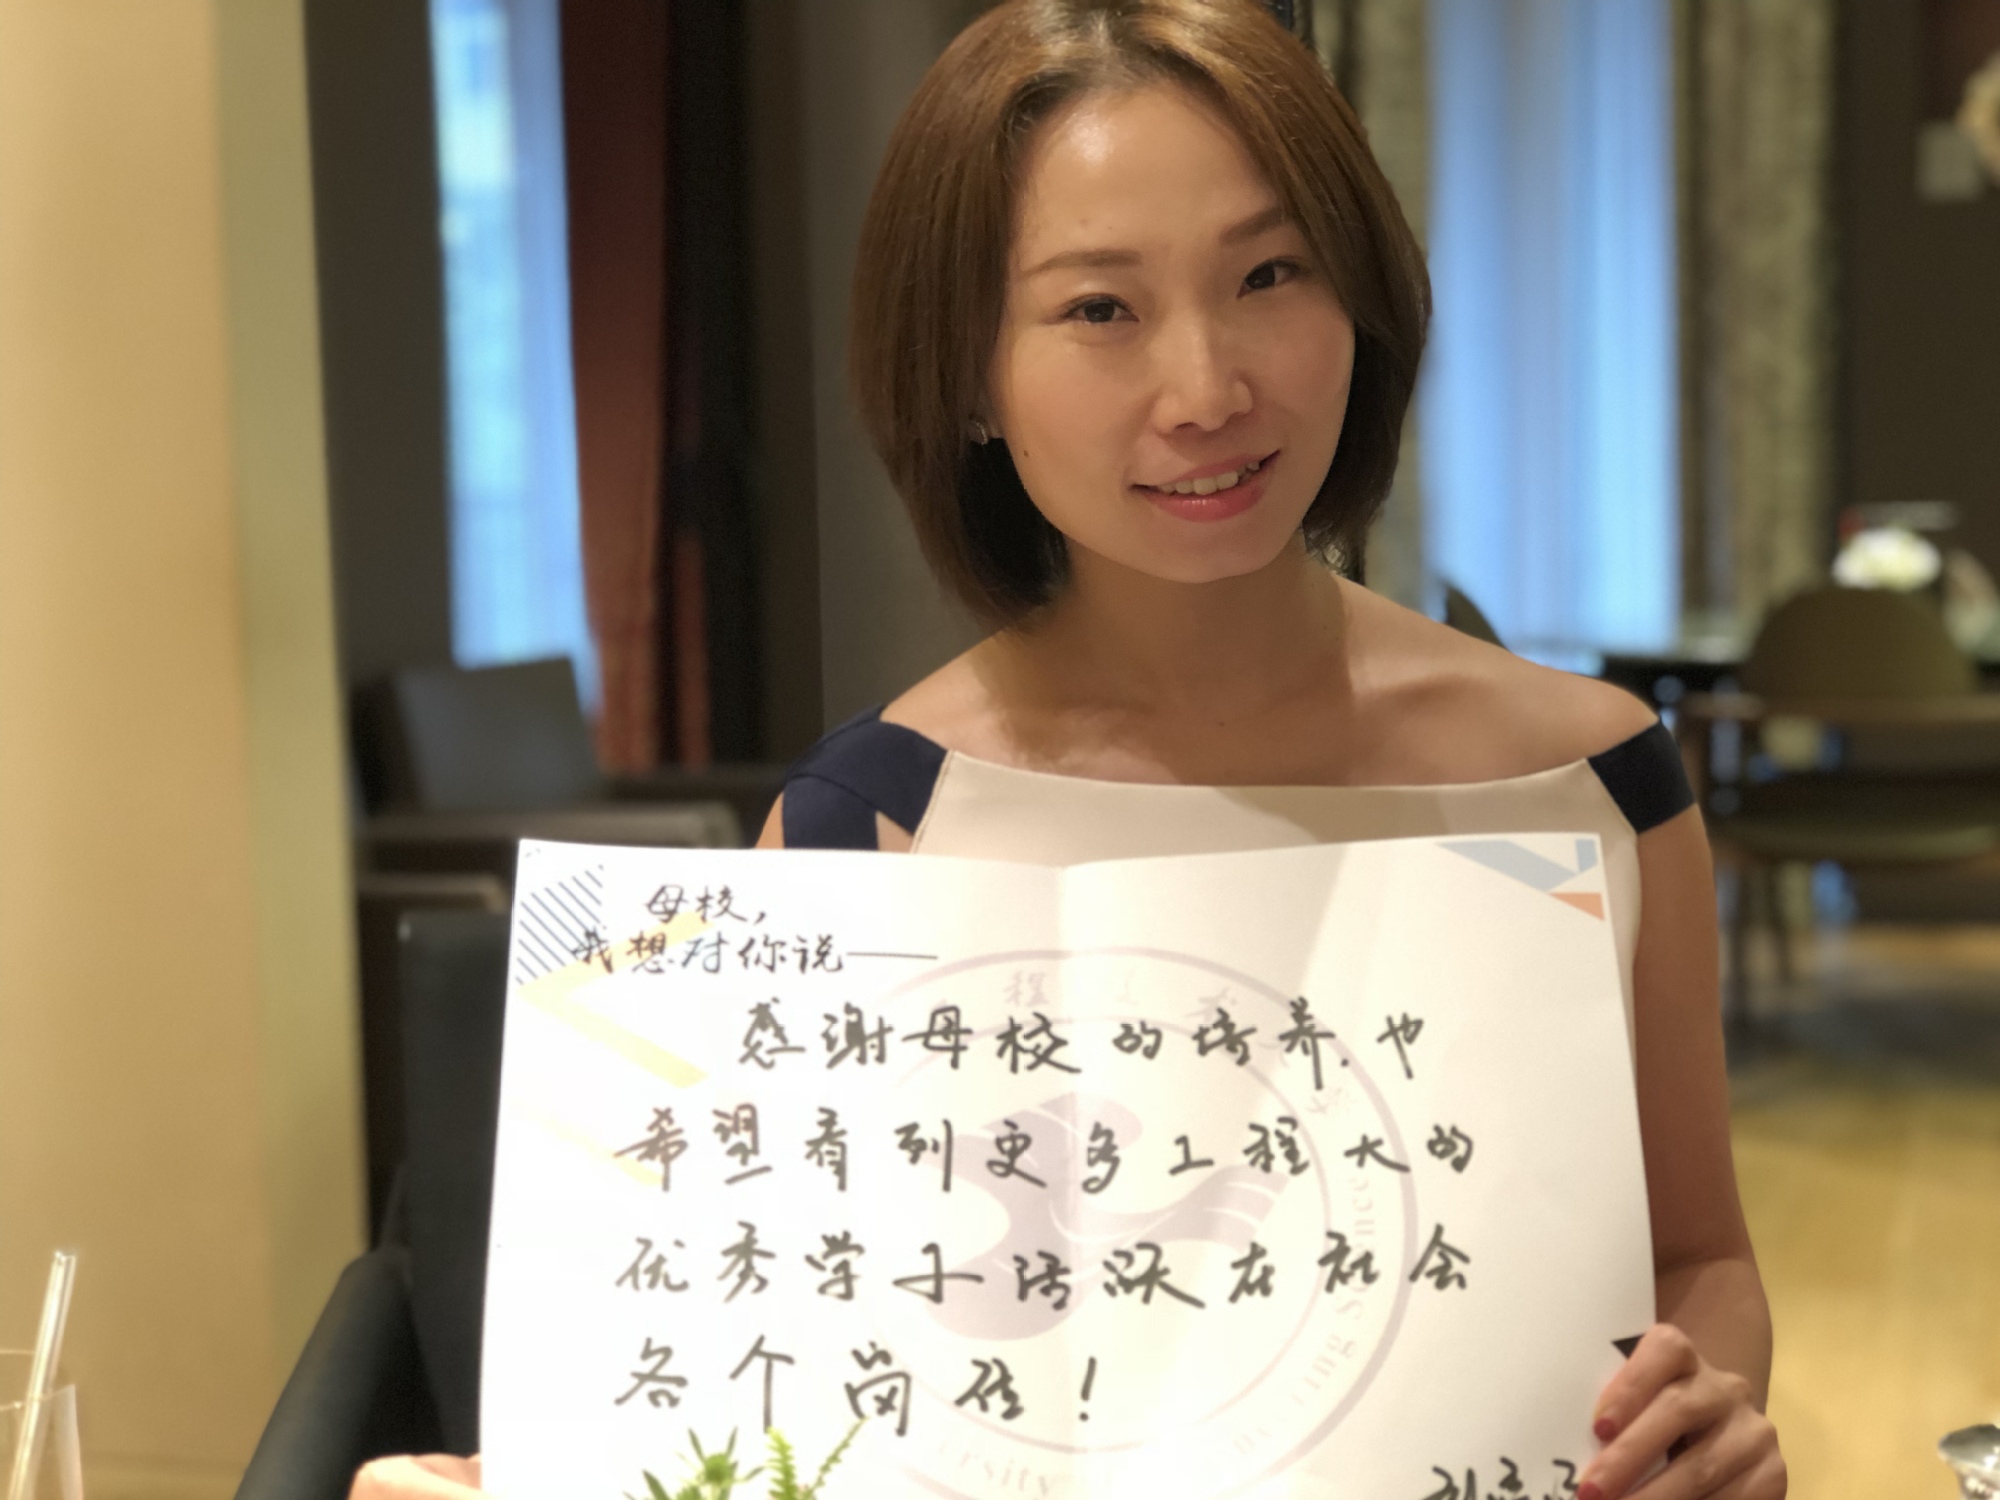 母校，
我想对你说——
感谢母校的培养.也
希望看到更多工程大的
优秀学子活跃在社会
各个岗位！
程
ersity
neering Science